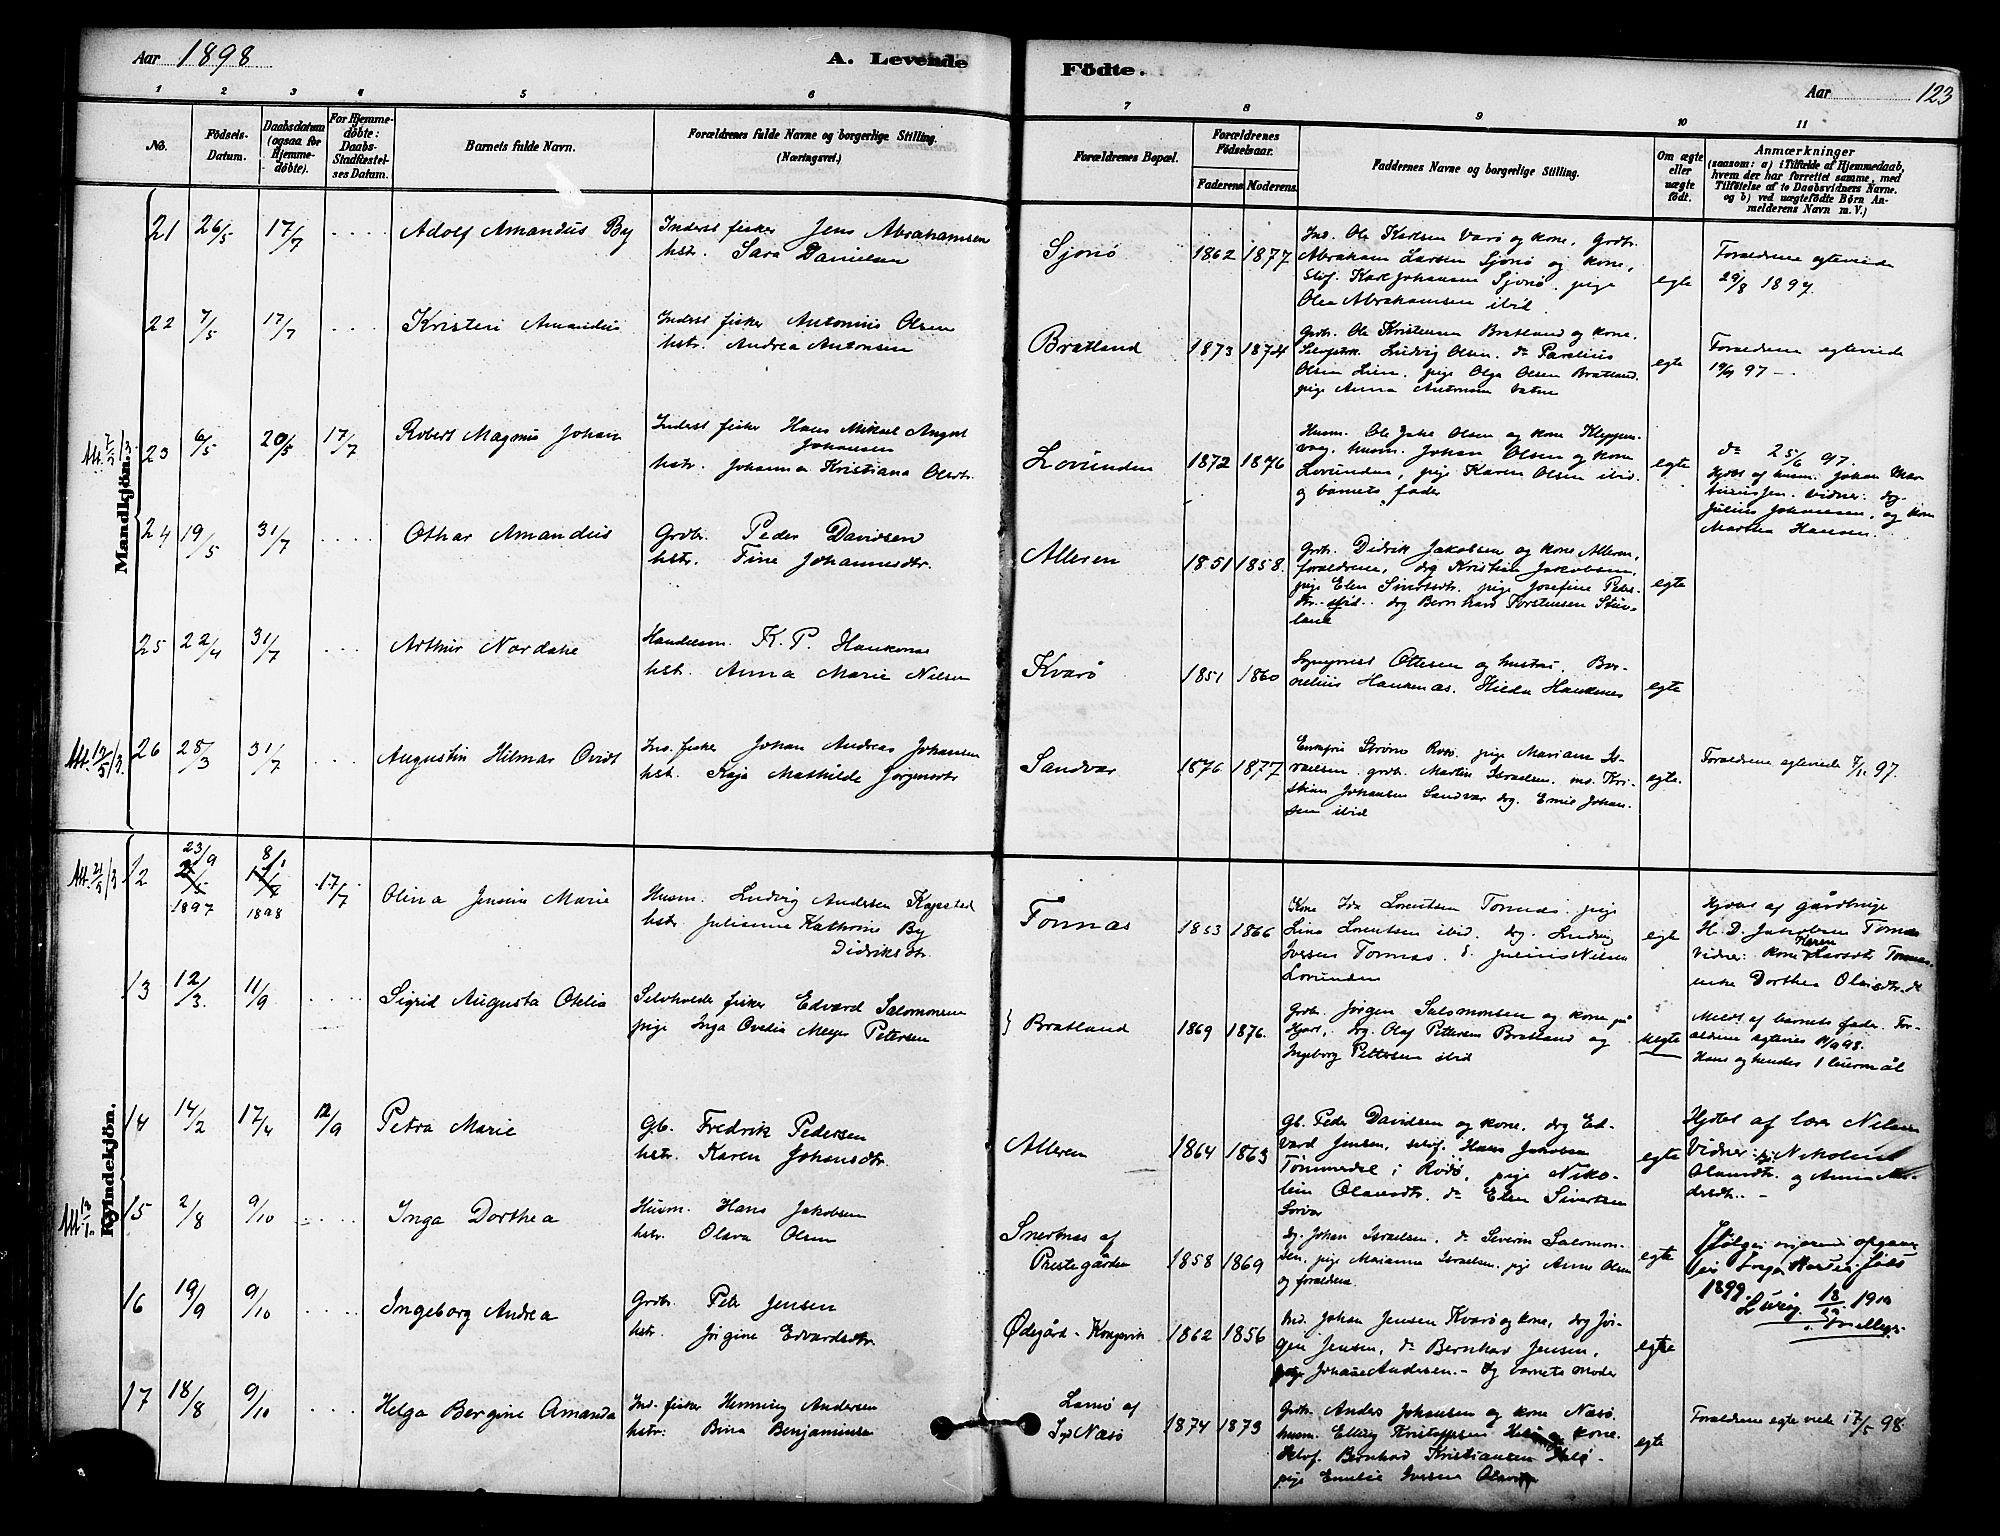 Aar 1898
A. Levende
Födte.
Aar
123
1 2 3 4 5 6 7 8 9 10 11
No.
Födsels-
Datum.
Daabsdatum
(ogsaa for
Hjemme-
döbte).
For Hjemme-
döbte:
Daabs-
Stadfæstel-
ses Datum.
Barnets fulde Navn.
Forældrenes fulde Navne og borgerlige Stilling.
(Næringsvei.)
Forældrenes Bopæl.
Forældrenes
Födselsaar.
Faderens Moderens.
Faddernes Navne og borgerlige Stilling.
Om ægte
eller
uægte
födt.
Anmærkninger
(saasom: a) i Tilfælde af Hjemmedaab,
hvem der har forrettet samme, med
Tilföielse af to Daabsvidners Navne.
og b) ved uægtefödte Börn An-
melderens Navn m. V.)
Mandkjön.
21 26/5 17/7 Adolf Amandus By
Inderst fisker Jens Abrahamsen
hstr. Sara Danielsen
Sjonö
1862 1877
Ind. Ole Karlsen Varö og kone, Grdbr.
Abraham Larsen Sjonö og kone,
Slof. Karl Johansen Sjonö, pige
Olea Abrahamsen ibid.
egte
Forældrene egteviede
29/8 1897.
22 7/5 17/7 Kristen Amandus
Inderst fisker Antonius Olsen
hstr. Andrea Antonsen
Bratland
1873 1874
Grdb. Ole Kristensen Bratland og kone,
Ludvig Olsen, do Parelius
Olsen Lien, pige Olga Olsen Bratland,
pige Anna Antonsen
egte
Forældrene egteviede
97
23 6/5 20/5 17/7 Robert Magnus Johan
Inderst fisker Hans Mikael August
Johansen
hstr. Johanna Kristiana Olsdtr.
Lovunden
1872 1876
Husm. Ole Olsen og kone Kleppen-
vag, husm. Johan Olsen og kone
Lovunden, pige Karen Olsen ibid.
og barnets fader
egte
do 25/6 97.
Hjdbt af husm. Johan Mar-
vidner: dg.
Julius Johansen, og kone
Martha Hansen.
24 19/5 31/7 Othar Amandus
Grdbr. Peder Davidsen
hstr. Tine Johannesdtr.
Alleren
1851 1858.
Grdbr. Didrik Jakobsen og kone Alleren,
forældrene, drg Kristian Jakobsen,
pige Elen Sivertsdtr. pige Josefine Peders-
dtr. ibid. drg Bernhard Torstensen Stuv-
land
egte
25 22/4 31/7 Arthur Nordahl
Handelsm. K. P. Hankenæs
hst. Anna Marie Nilsen
Kvarö
1851 1860
Ottesen og hustru, Bor-
nelius Hankenæs. Hilda Hankenes
egte
26 28/3 31/7 Augustin Hilmar Ovidt
Ind. fisker Johan Andreas Johansen
hst. Kaja Mathilde Jörgensdtr.
Sandvær
1876 1877
Ström Rodö, pige Mariane Is-
raelsen. grdbr. Martin Israelsen, ind. Kri-
stian Johansen Sandvær drg. Emil Johan-
sen ibid
egte.
Forældrene egteviede 97.
Kvindekjön.
12 23/9 1897 8/1 1898 17/7 Olina Jensine Marie
Husm. Ludvig Andersen Kapsted
hstr Julianne Kathrine By
Didriksdtr.
Tonnæs
1853 1866
Kone Ida Lorentsen Tonnæs, pige
Lina Lorentsen ibid. drg. Ludvig
Iversen Tonnæs. d. Julius Nilsen
Lovunden
egte
Hjdbt af gårdbruger
H. D. Jakobsen Tonnes
Vidner: kone Karen
enke Dorthea Olaisdtr.
13 12/3 11/9 Sigrid Augusta Otelia
Selvholdt fisker Edvard Salomonsen
pige Inga Ovedia Meyer Petersen
Bratland
1869 1876.
Grdb. Jörgen Salomonsen og kone på
Hjart, drg. Olaf Pettersen Bratland og
Ingeborg Pettersen ibid
uegte
Meldt af barnets fader. For-
ældrene egteviet 98.
Hans og hendes 1 leiermål
14 14/2 17/4 12/9 Petra Marie
Gb. Fredrik Pedersen
hstr. Karen Johansdtr.
Alleren
1864 1863
Gb. Peder Davidsen og kone, drg Ed-
vard Jensen, selof. Hans Jakobsen
Tömmerdal i Rödö, pige Niko-
line Olausdtr. do Elen Sivertsen
Sörvær
egte
Hjdbt af lærer Nilsen
Vidner: Nikoline
Olausdtr. og Anna An-
dersdtr.
15 2/8 9/10 Inga Dorthea
Husm. Hans Jakobsen
hstr. Olava Olsen
Snertnæs af
Prestegården
1858 1869
dg. Johan Israelsen, do Severin Salomon-
sen, pige Marianne Israelsen, pige Anne Olsen
og forældrene.
egte
1899. Luröy 18 1910
16 19/9 9/10 Ingeborg Andrea
Grdbr. Petr Jensen
hstr. Jörgine Edvardsdtr.
Ödegård - Kongsvik
1862 1856
Ind. Johan Jensen Kvarö og kone, drg Jör-
gen Jensen, do Bernhard Jensen,
pige Johanne Andersen - og barnets moder
egte
17 18/8 9/10 Helga Bergine Amanda
Ind. fisker Henning Andersen
hstr. Bina Benjaminsen
Næsö
1874 1873
Grdb. Anders Johansen og kone Næsö,
husm. Elling Kristoffersen og kone.
Selof. Bernhard Kristiansen
pige Emelie Iversen
egte
Forældrene egteviede 17/5 98